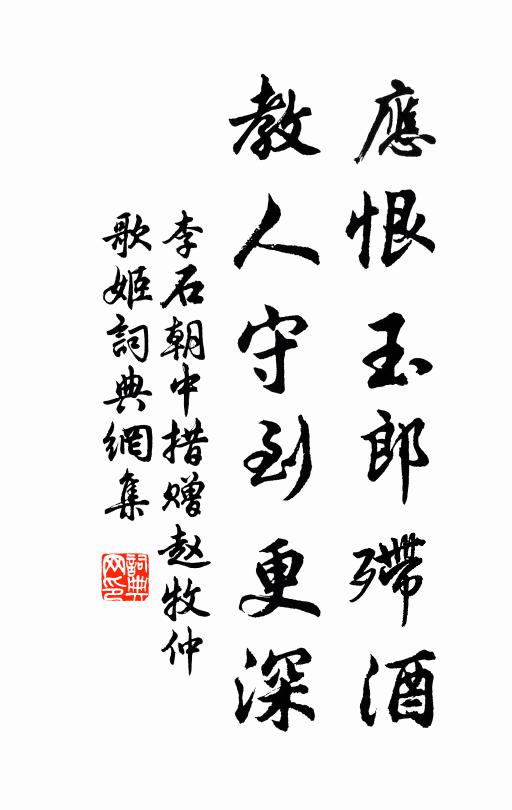 應恨玉郎殢酒
教人守到更深
李石朝中措赠赵牧仲
歌姬詞典網集
詞典网印